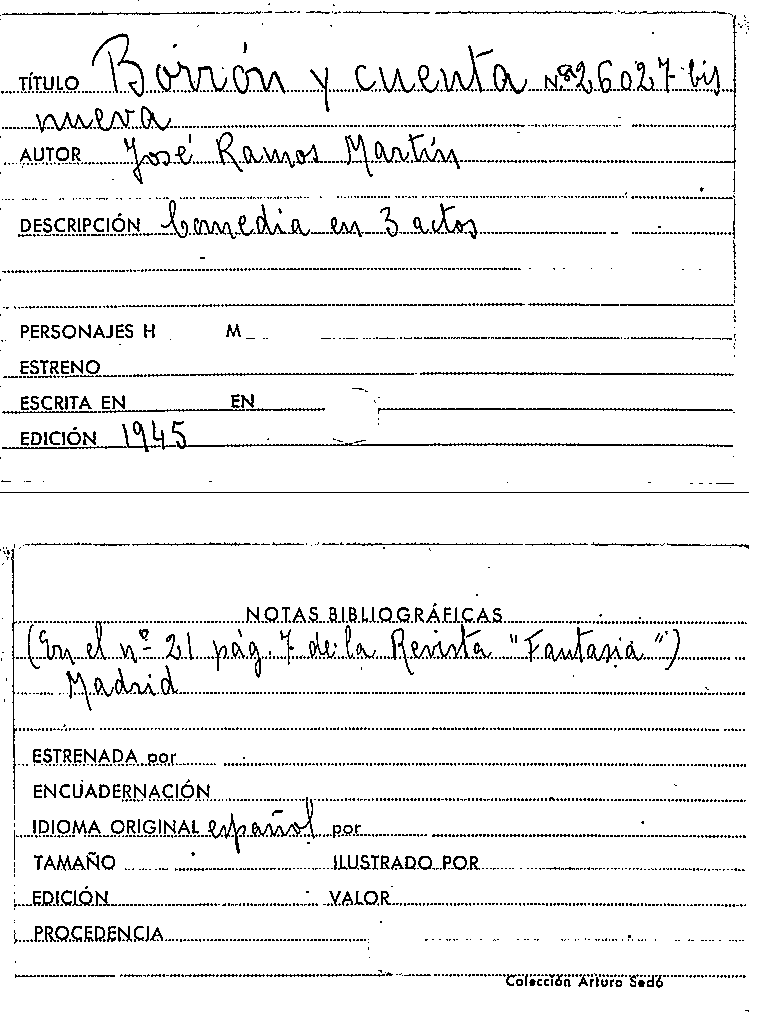 TÍTULO Borrón y cuenta Nº 26027 bis
nueva
AUTOR José Ramos Martín
DESCRIPCIÓN Comedia en 3 actos
PERSONAJES H M
ESTRENO
ESCRITA EN EN
EDICIÓN 1945
NOTAS BIBLIOGRÁFICAS
(En el nº 21 pág. 7 de la Revista "Fantasia")
Madrid
ESTRENADA por
ENCUADERNACIÓN
IDIOMA ORIGINAL español por
TAMAÑO ILUSTRADO POR
EDICIÓN VALOR
PROCEDENCIA
Colección Arturo Sedó